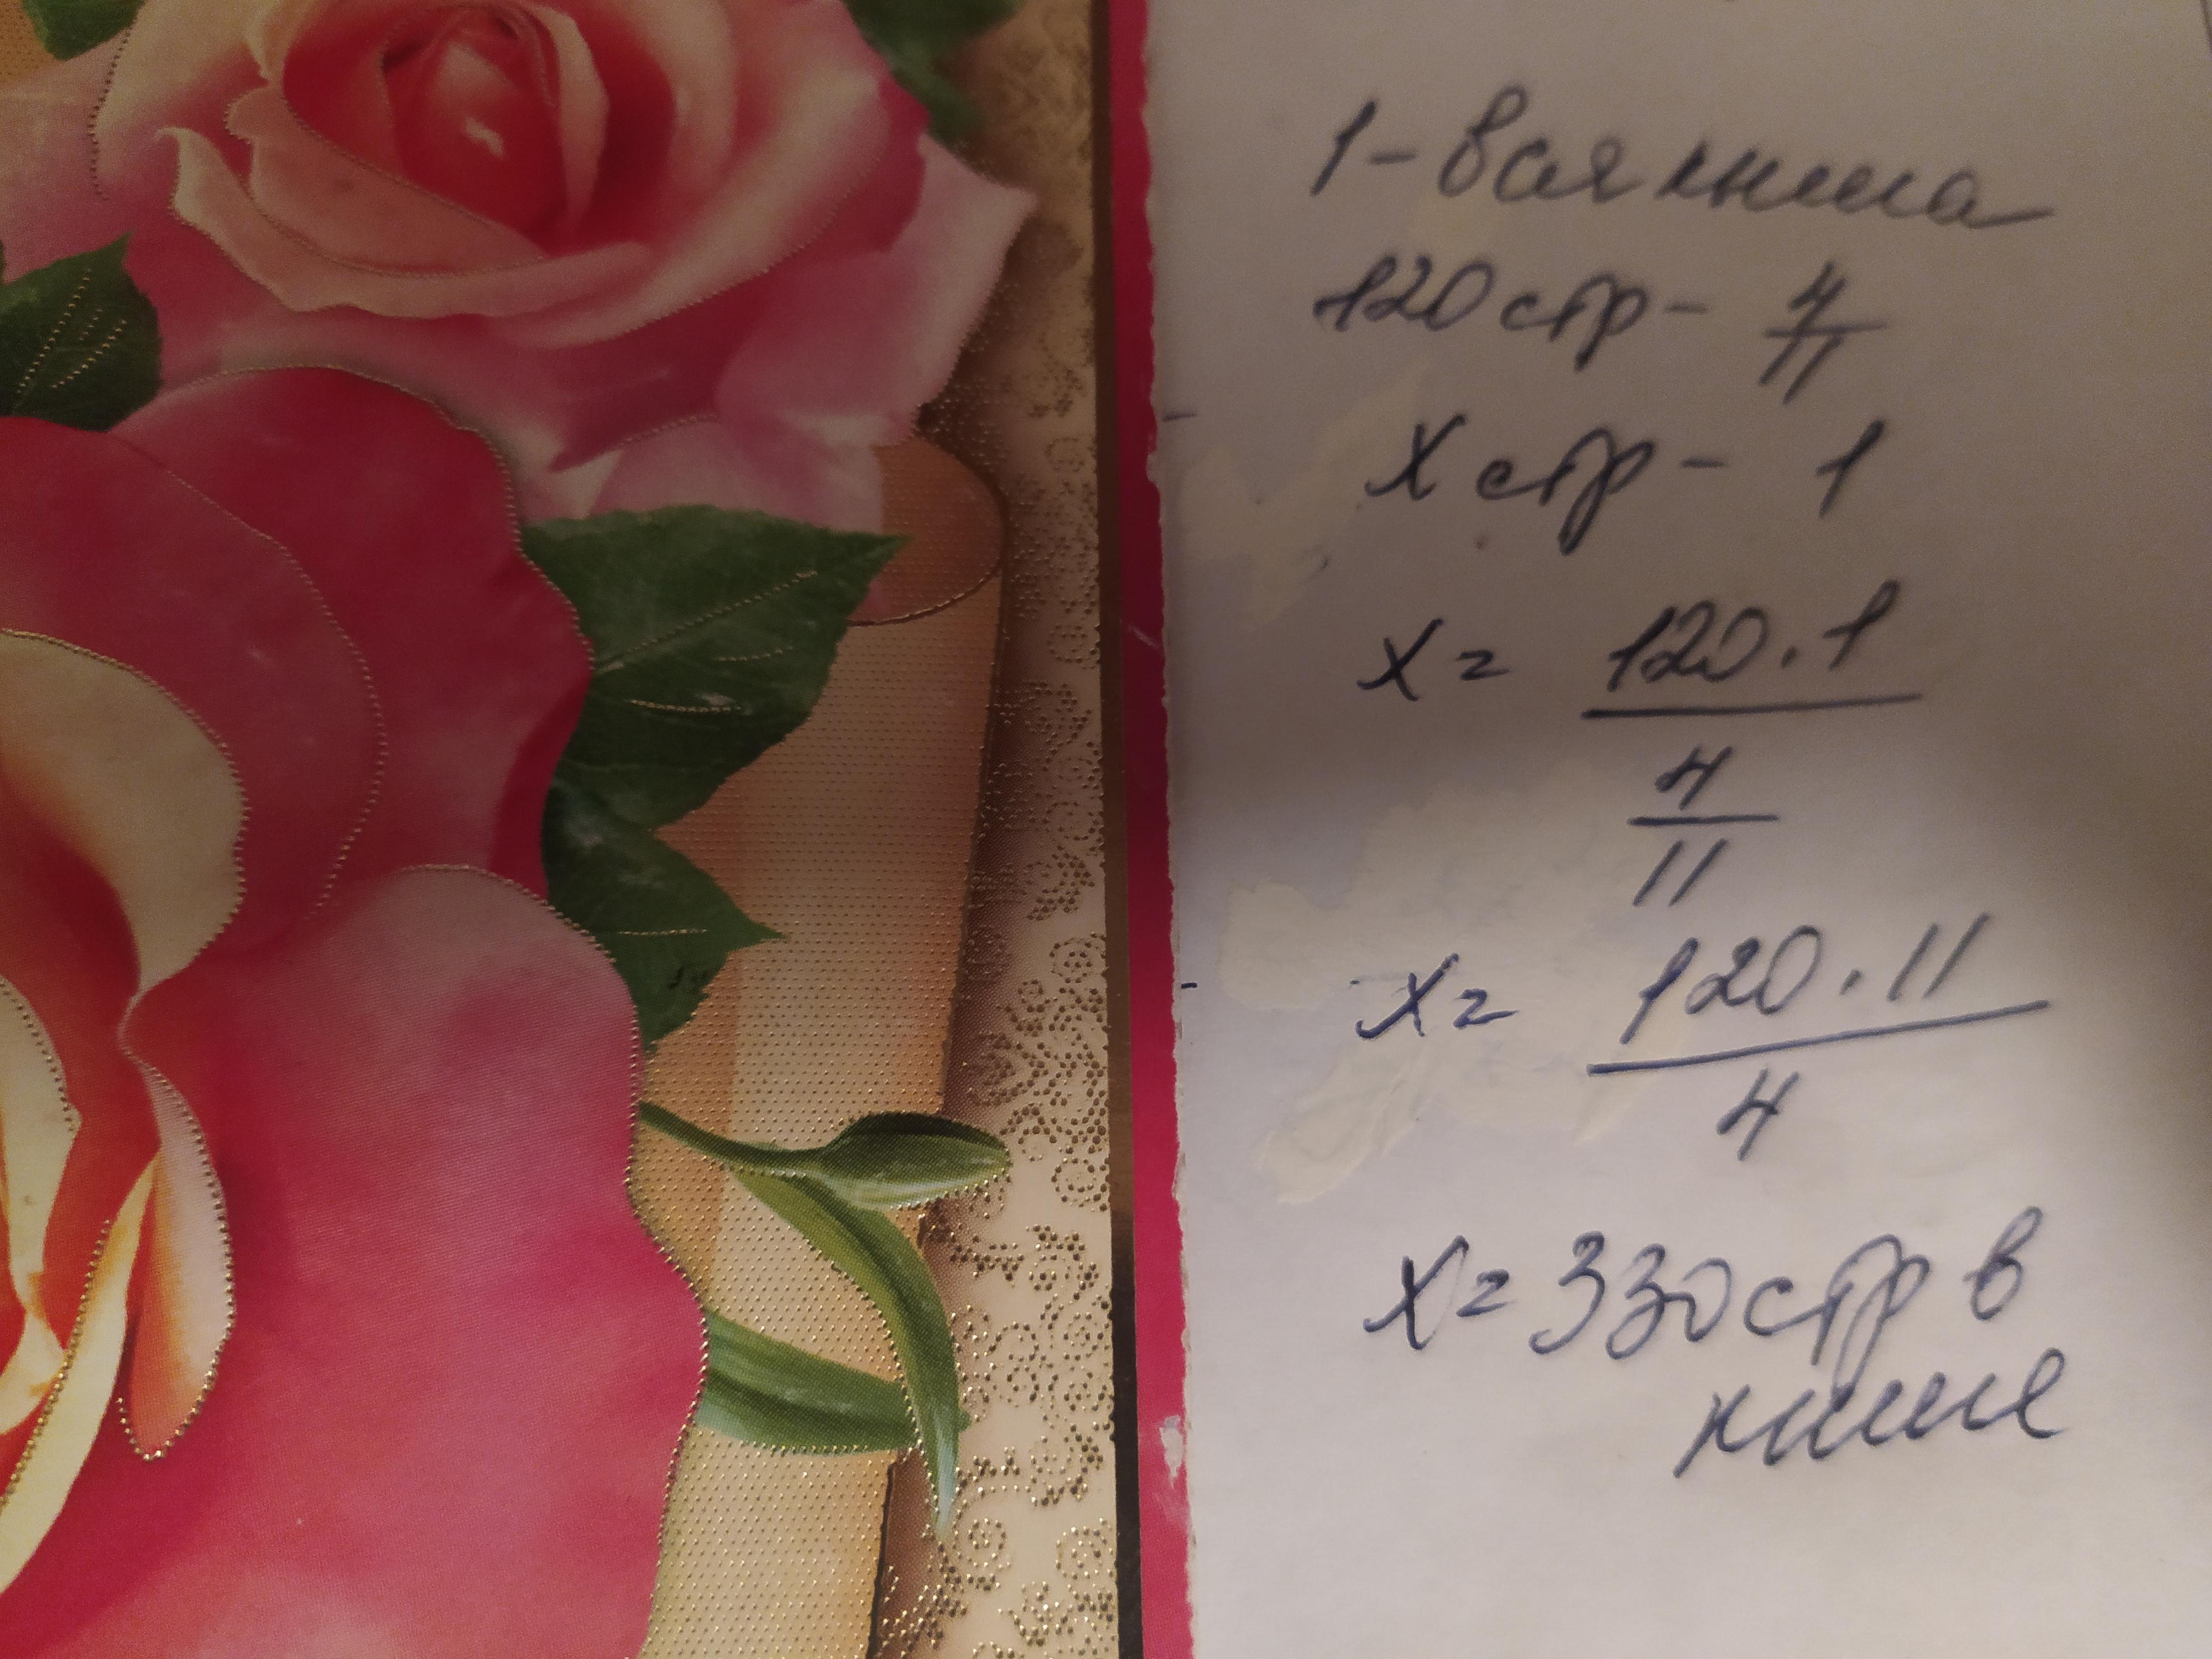 1 - вся книга
120 стр - 4/11
x стр - 1
x = 120 · 1
4
11
x = 120 · 11
4
x = 330 стр в
книге